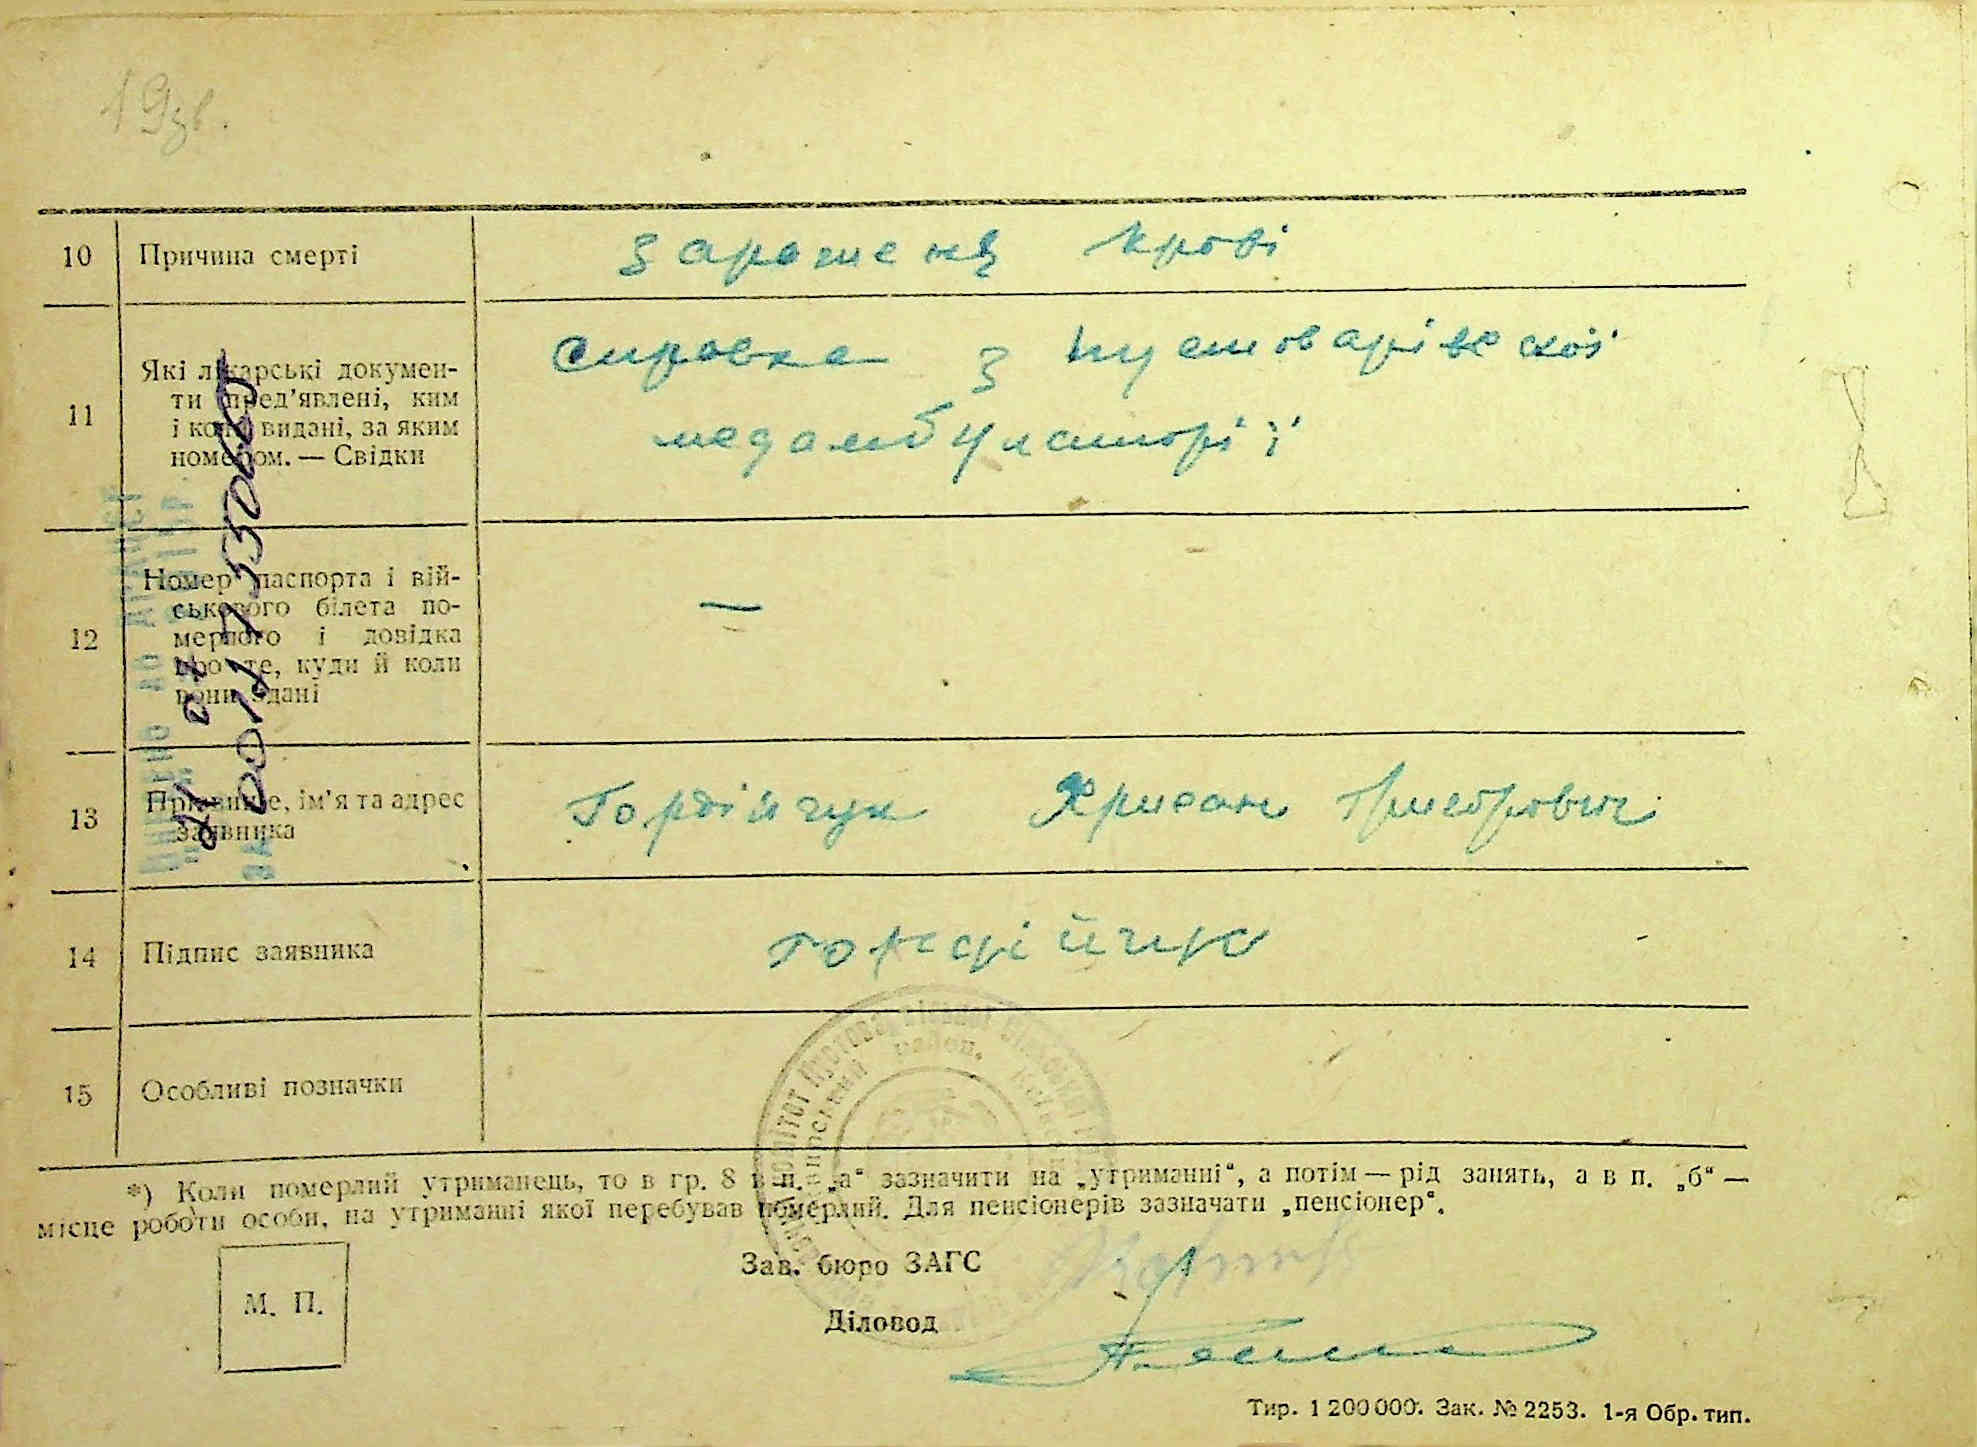 19зв.
10 Причина смерті зараження крові
11 Які лікарські докумен-
ти пред’явлені, ким
і коли видані, за яким
номером. — Свідки
справка з Пустоварівскої
медамбулаторії
12 Номер паспорта і вій-
ськового білета по-
мерлого і довідка
про те, куди й коли
вони здані
—
13 Прізвище, ім’я та адрес
заявника
Гордійчук Хрисан Григорович
14 Підпис заявника Гордійчук
15 Особливі позначки
*) Коли померлий утриманець, то в гр. 8 в п. „а“ зазначити на „утриманні“, а потім — рід занять, а в п. „б“ —
місце роботи особи, на утриманні якої перебував померлий. Для пенсіонерів зазначати „пенсіонер“.
Зав. бюро ЗАГС
М. П.
Діловод
Тир. 1 200 000. Зак. № 2253. 1-я Обр. тип.